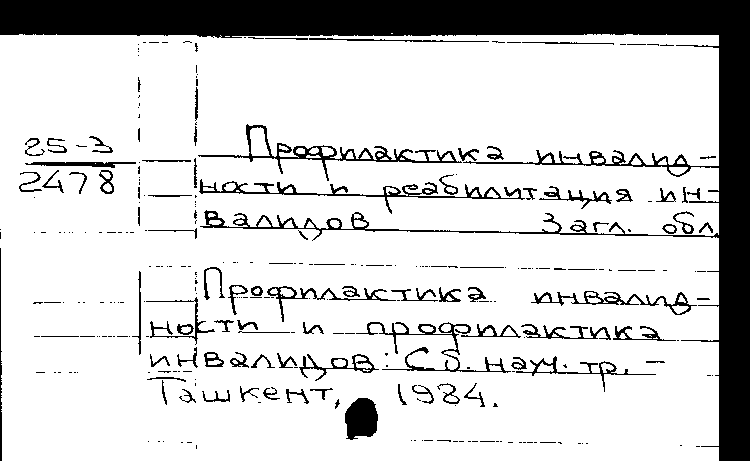 85-3
2478
Профилактика инвалид-
ности и реабилитация ин-
валидов Загл. обл.
Профилактика инвалид-
ности и профилактика
инвалидов: Сб. науч. тр. -
Ташкент, 1984.